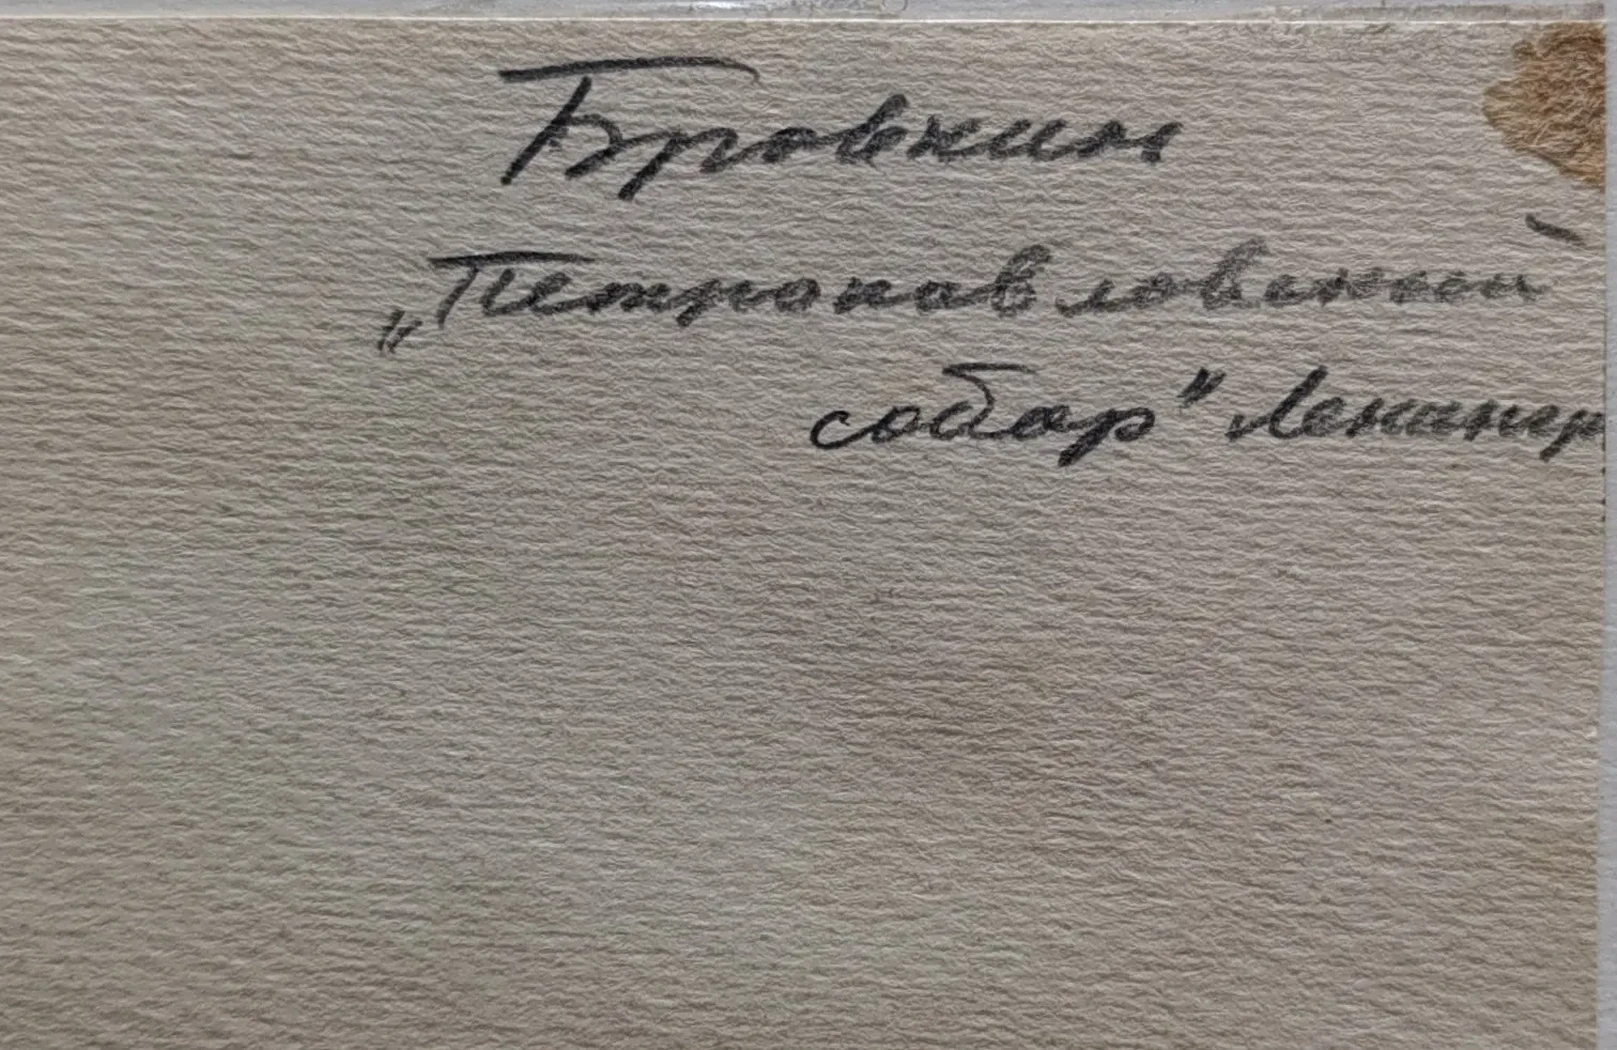 Бровкин
„Петропавловский
собор" Ленингр